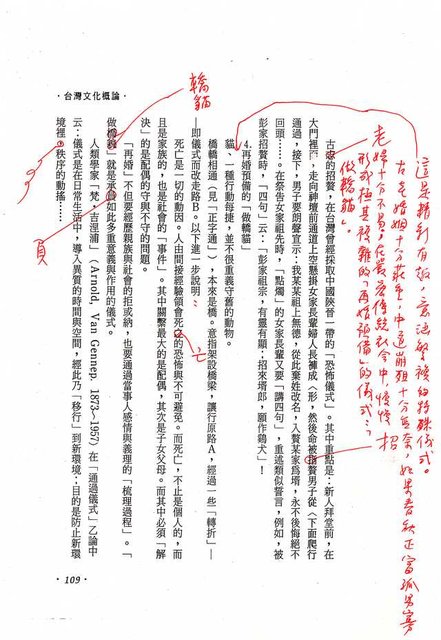 這是精彩有趣、意涵繁複的特殊儀式。
古老婚姻十分莊重,中道崩殂十分無奈,如果春秋正富孤男寡
十分不易,在嚴密傳統社會中,慢慢
形成極其複雜的「再婚預備」的儀式:
做轎貓」。
招
古老的招贅,在台灣曾經採取中國陝晉一帶的「恐怖儀式」。其中重點是:新人拜堂前,在
大門裡,走向神壇前通道上空懸掛女家長輩婦人長褲成ㄇ形,然後命被招贅男子從ㄇ下面爬行
通過,接下,男子要朗聲宣示:我某某祖上無德,從此棄姓改名,入贅某家爲壻,永不後悔絕不
回頭……。在祭告女家祖先時,「點燭」的女家長輩又要「講四句」,重述類似誓言,例如,被
彭家招贅時,「四句」云:「彭家祖宗,有靈有顯;招來壻郎,願作鷄犬!」
4.再婚預備的「做轎貓」
貓、一種行動每捷,並不很重義守舊的動物。
橋轎相通(見「正字通」),本來是橋。意指架設橋梁,讓行原路A,經過一些「轉折」——
即儀式而改走路B。以下進一步說明:
死亡是一切的動因。人由間接經驗領會死的恐怖與不可避免。而死亡,不止是個人的,而
亡
且是家族的,也是社會的「事件」。其中關繫最大的是配偶,其次是子女父母。而其中必須「解
決」的是配偶的守與不守的問題。
轎貓
「再婚」不但要經歷親族與社會的拒或納,也要通過當事人感情與義理的「梳理過程」。「
做橋貓」就是承負如此多重意義與作用的儀式。
負
人類學家「梵・吉涅浦」(Arnold, Van Gennep. 1873~1957)在「通過儀式」乙論中
云:儀式是在日常生活中,導入異質的時間與空間,經此乃「移行」到新環境;目的是防止新環
境裡。秩序的動搖……
・台灣文化概論・
・109・